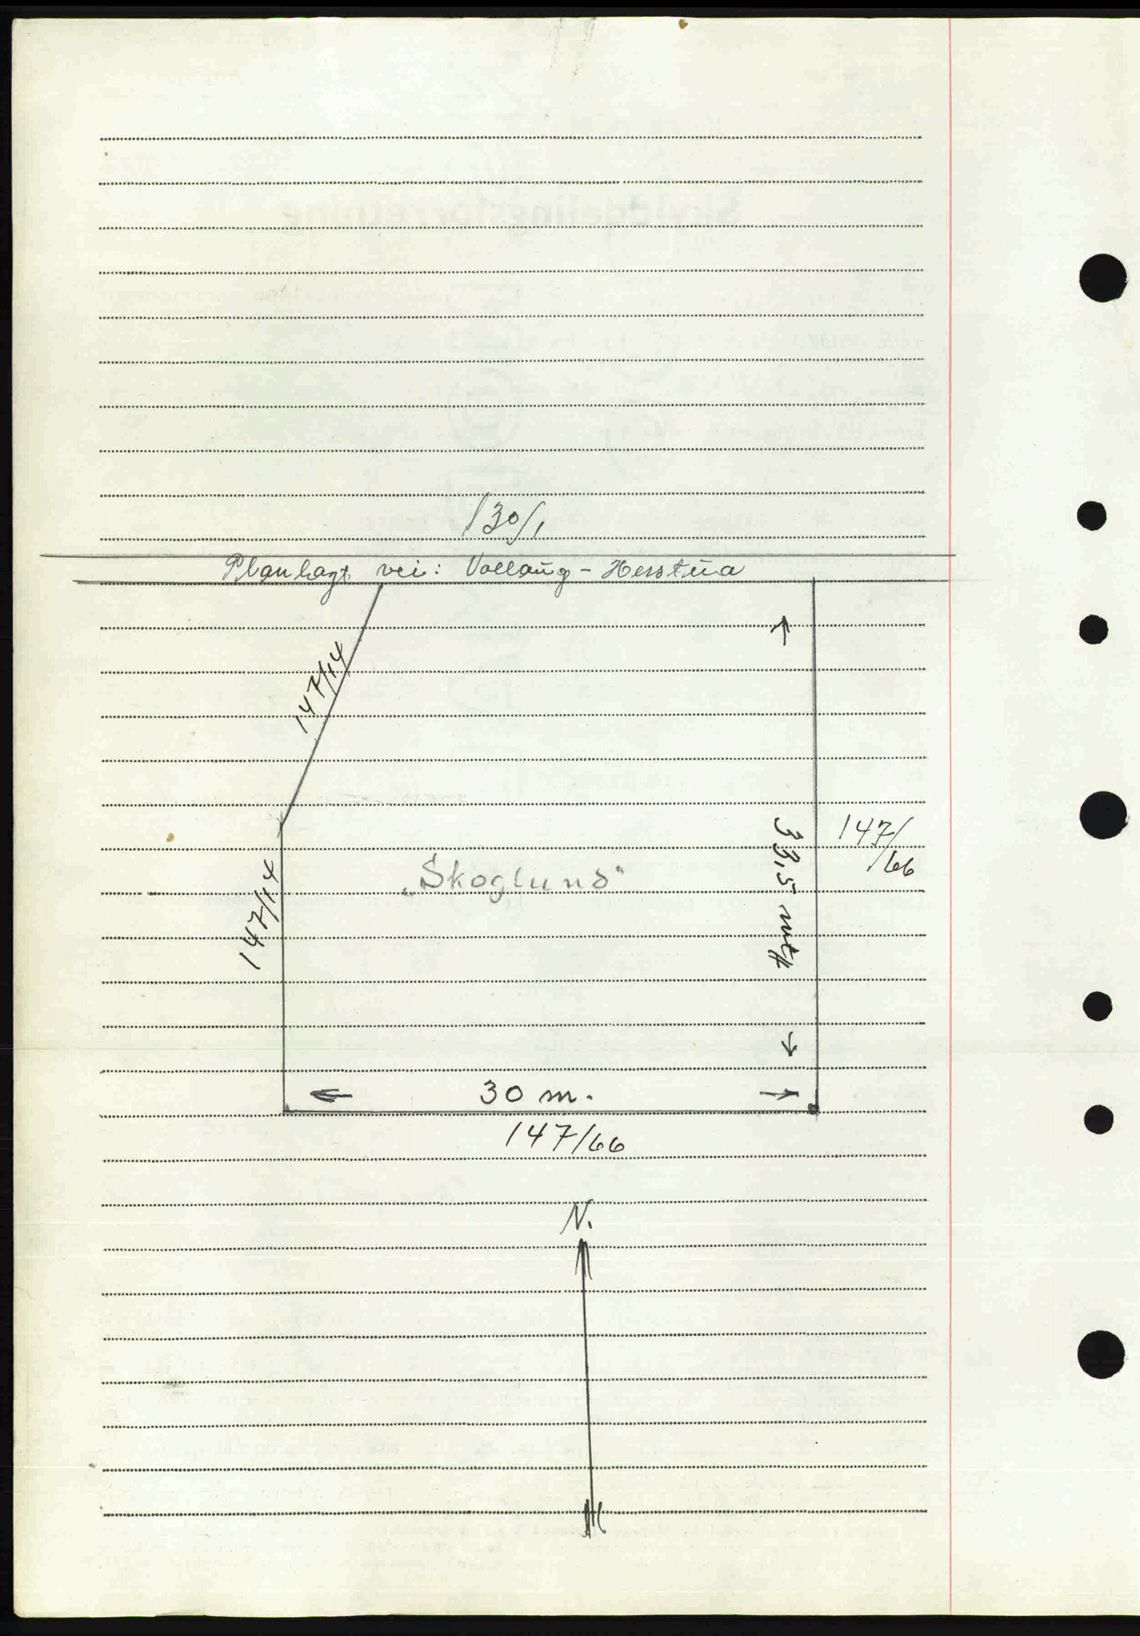 130/1
Planlagt vei: Vollaug - Herstua
147/14
147/14
"Skoglund"
33,5 mtr
147/66
30 m.
147/66
N.